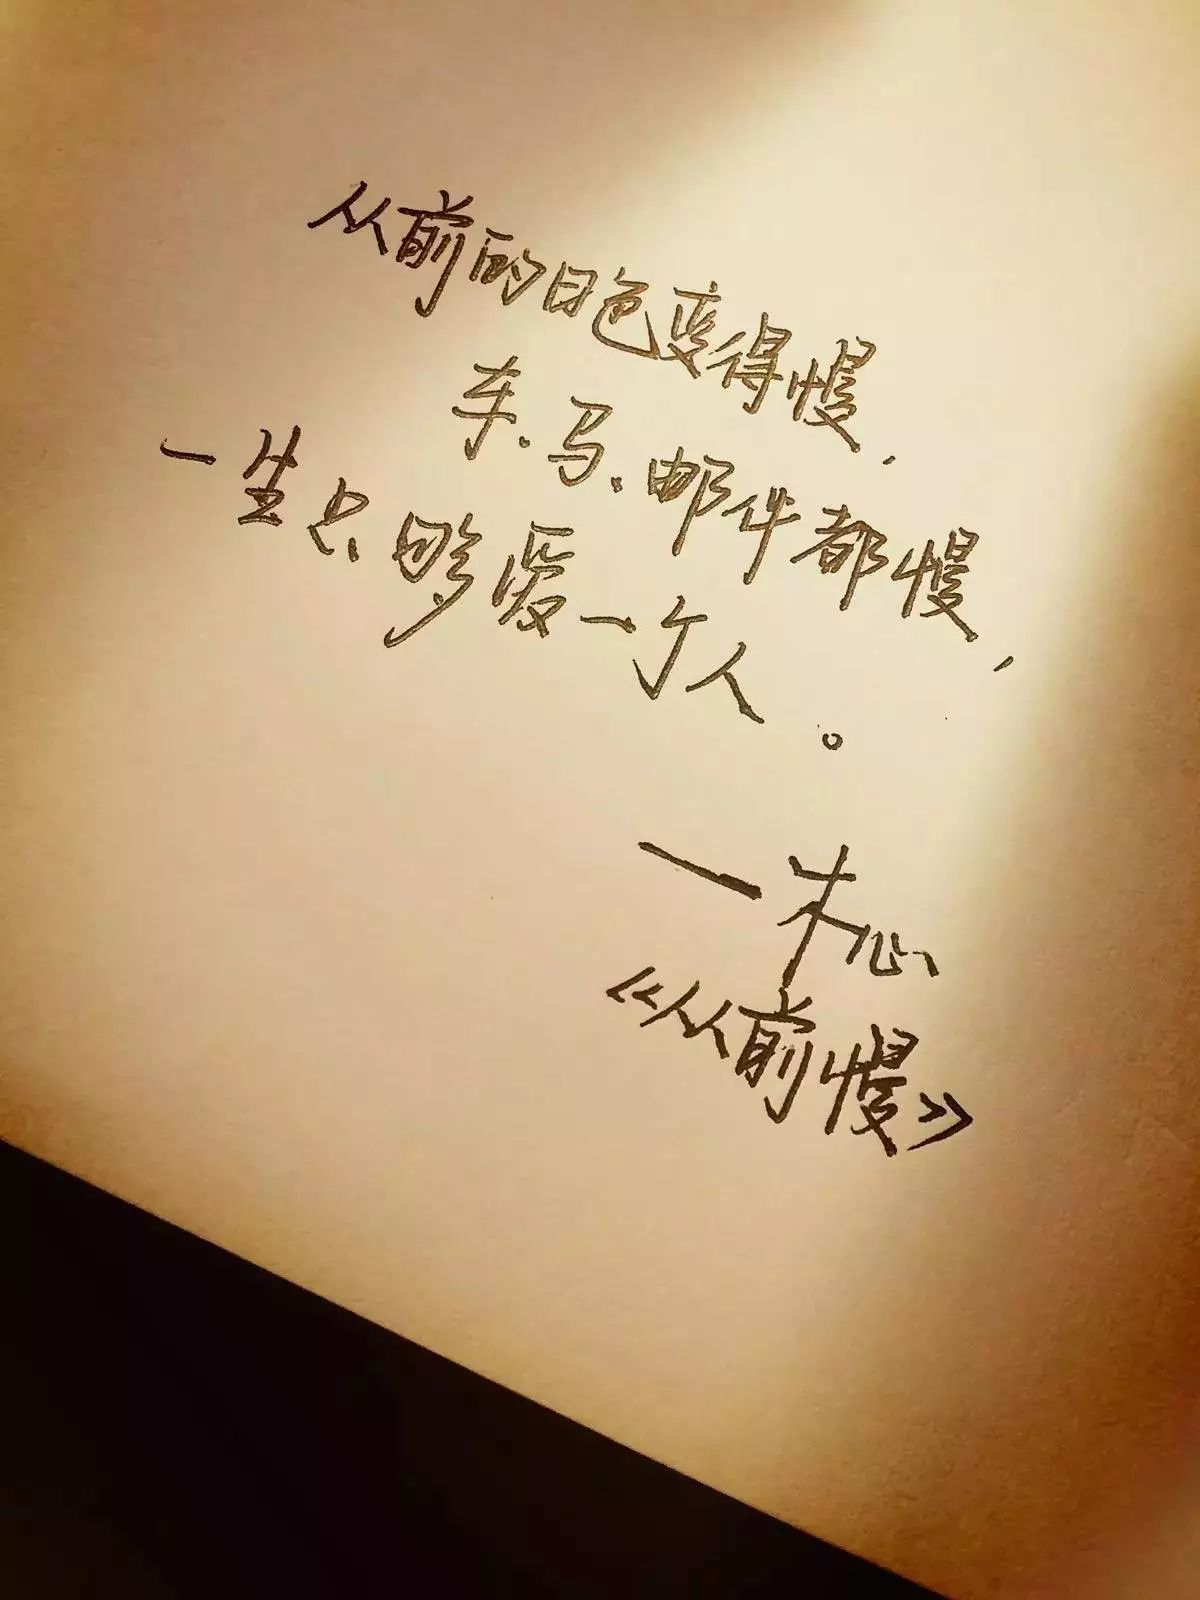 从前的日色变得慢，
车、马、邮件都慢，
一生只够爱一个人。
—木心
《从前慢》